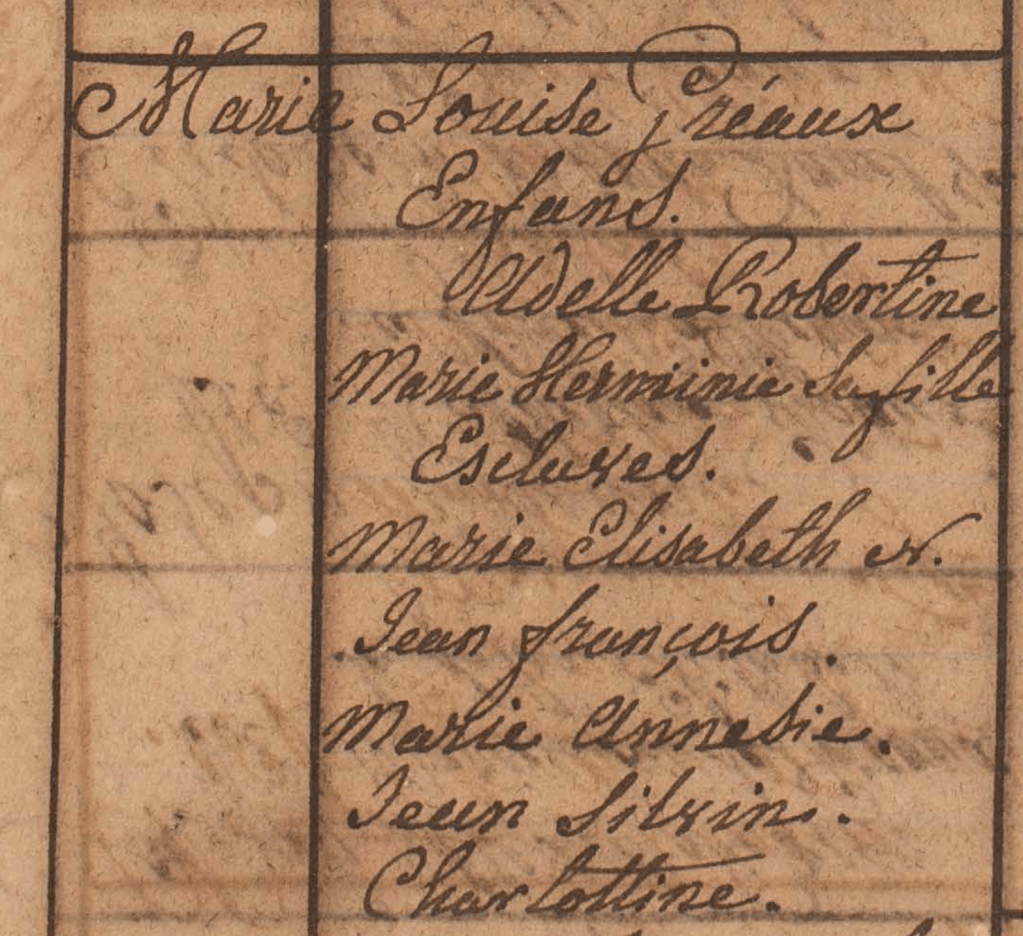 Marie Louise Gréaux
Enfans.
Adelle Robertine
Marie Herminie Sa fille
Esclaves.
Marie Elisabeth
Jean françois.
Marie Annesie.
Jean Silvin.
Charlottine.